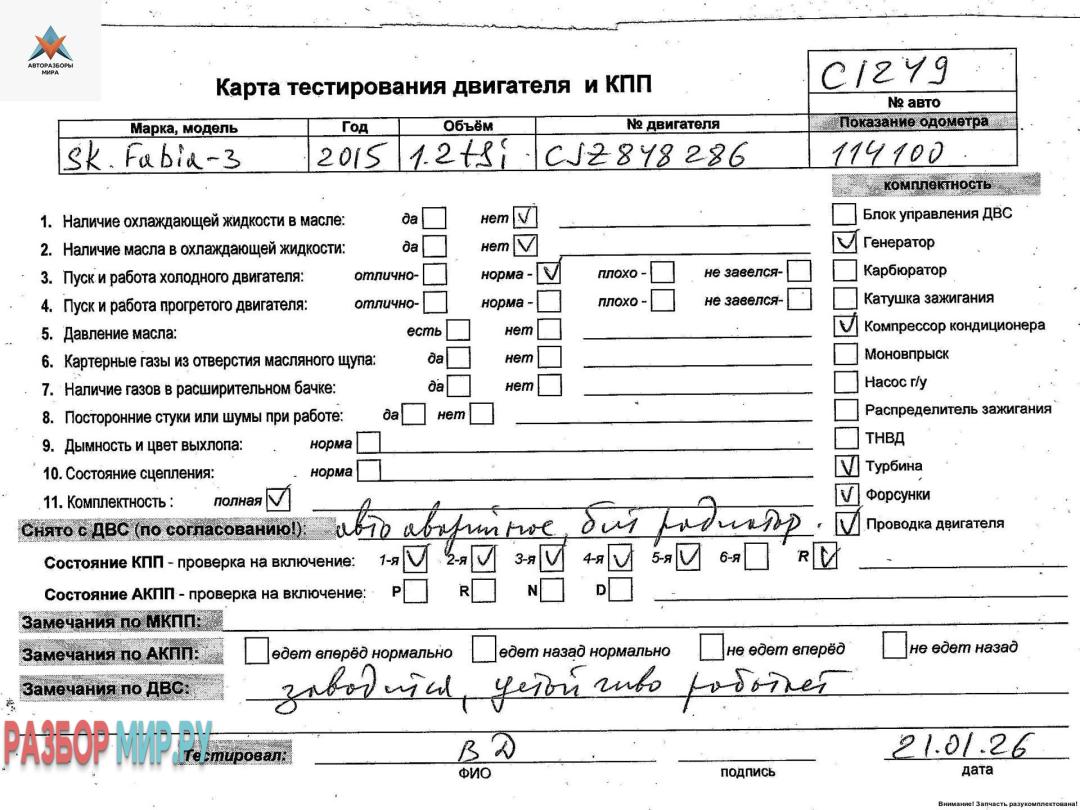 АВТОРАЗБОРЫ
МИРА
Карта тестирования двигателя и КПП
C1249
№ авто
Марка, модель Год Объём № двигателя Показание одометра
Sk. Fabia-3 2015 1.2 tsi CJZ848286 114100
комплектность
1. Наличие охлаждающей жидкости в масле: да нет ✓
2. Наличие масла в охлаждающей жидкости: да нет ✓
3. Пуск и работа холодного двигателя: отлично- норма - ✓ плохо - не завелся-
4. Пуск и работа прогретого двигателя: отлично- норма - плохо - не завелся-
5. Давление масла: есть нет
6. Картерные газы из отверстия масляного щупа: да нет
7. Наличие газов в расширительном бачке: да нет
8. Посторонние стуки или шумы при работе: да нет
9. Дымность и цвет выхлопа: норма
10. Состояние сцепления: норма
11. Комплектность : полная ✓
Блок управления ДВС
✓ Генератор
Карбюратор
Катушка зажигания
✓ Компрессор кондиционера
Моновпрыск
Насос г/у
Распределитель зажигания
ТНВД
✓ Турбина
✓ Форсунки
✓ Проводка двигателя
Снято с ДВС (по согласованию!): авто аварийное, бит радиатор.
Состояние КПП - проверка на включение: 1-я ✓ 2-я ✓ 3-я ✓ 4-я ✓ 5-я ✓ 6-я R ✓
Состояние АКПП - проверка на включение: P R N D
Замечания по МКПП:
Замечания по АКПП: едет вперёд нормально едет назад нормально не едет вперёд не едет назад
Замечания по ДВС: заводится, устойчиво работает
РАЗБОР МИР.РУ
Тестировал: ВД 21.01.26
ФИО подпись дата
Внимание! Запчасть разукомплектована!